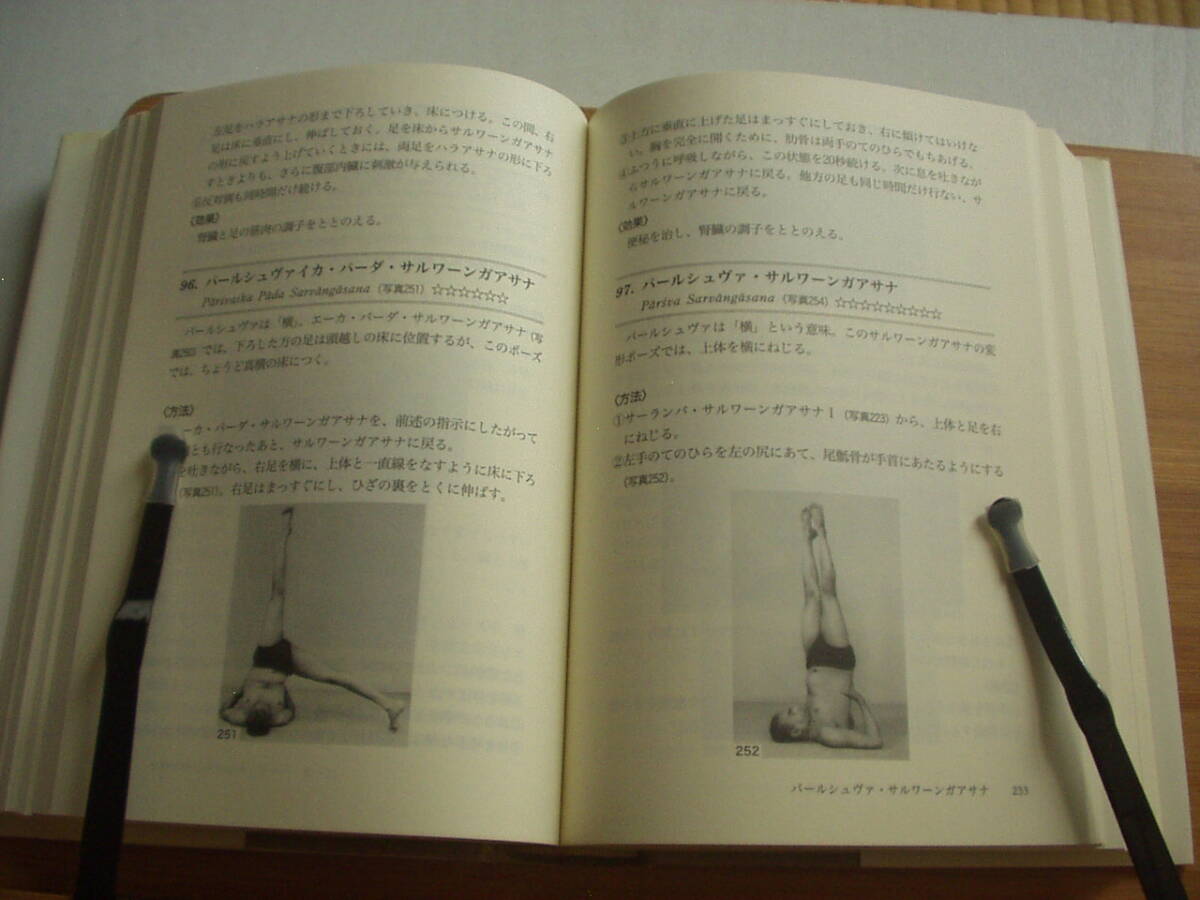 左足をハラアサナの形まで下ろしていき、床につける。この間、右
足は床に垂直にし、伸ばしておく。足を床からサルワーンガアサナ
の形に戻すよう上げていくときには、両足をハラアサナの形に下ろ
すときよりも、さらに腹部内臓に刺激が与えられる。
⑤反対側も同時間だけ続ける。
〈効果〉
腎臓と足の筋肉の調子をととのえる。
96. パールシュヴァイカ・パーダ・サルワーンガアサナ
Pārśvaika Pāda Sarvāngāsana (写真251) ☆☆☆☆☆☆
パールシュヴァは「横」。エーカ・パーダ・サルワーンガアサナ(写
真250)では、下ろした方の足は頭越しの床に位置するが、このポーズ
では、ちょうど真横の床につく。
〈方法〉
ーカ・パーダ・サルワーンガアサナを、前述の指示にしたがって
とも行なったあと、サルワーンガアサナに戻る。
を吐きながら、右足を横に、上体と一直線をなすように床に下ろ
(写真251)。右足はまっすぐにし、ひざの裏をとくに伸ばす。
251
③上方に垂直に上げた足はまっすぐにしておき、右に傾けてはいけな
い。胸を完全に開くために、肋骨は両手のてのひらでもちあげる。
④ふつうに呼吸しながら、この状態を20秒続ける。次に息を吐きなが
らサルワーンガアサナに戻る。他方の足も同じ時間だけ行ない、サ
ルワーンガアサナに戻る。
〈効果〉
便秘を治し、腎臓の調子をととのえる。
97. パールシュヴァ・サルワーンガアサナ
Pārśva Sarvāngāsana (写真254) ☆☆☆☆☆☆☆☆☆
パールシュヴァは「横」という意味。このサルワーンガアサナの変
形ポーズでは、上体を横にねじる。
〈方法〉
①サーランバ・サルワーンガアサナⅠ(写真223)から、上体と足を右
にねじる。
②左手のてのひらを左の尻にあて、尾骶骨が手首にあたるようにする
(写真252)。
252
パールシュヴァ・サルワーンガアサナ 233